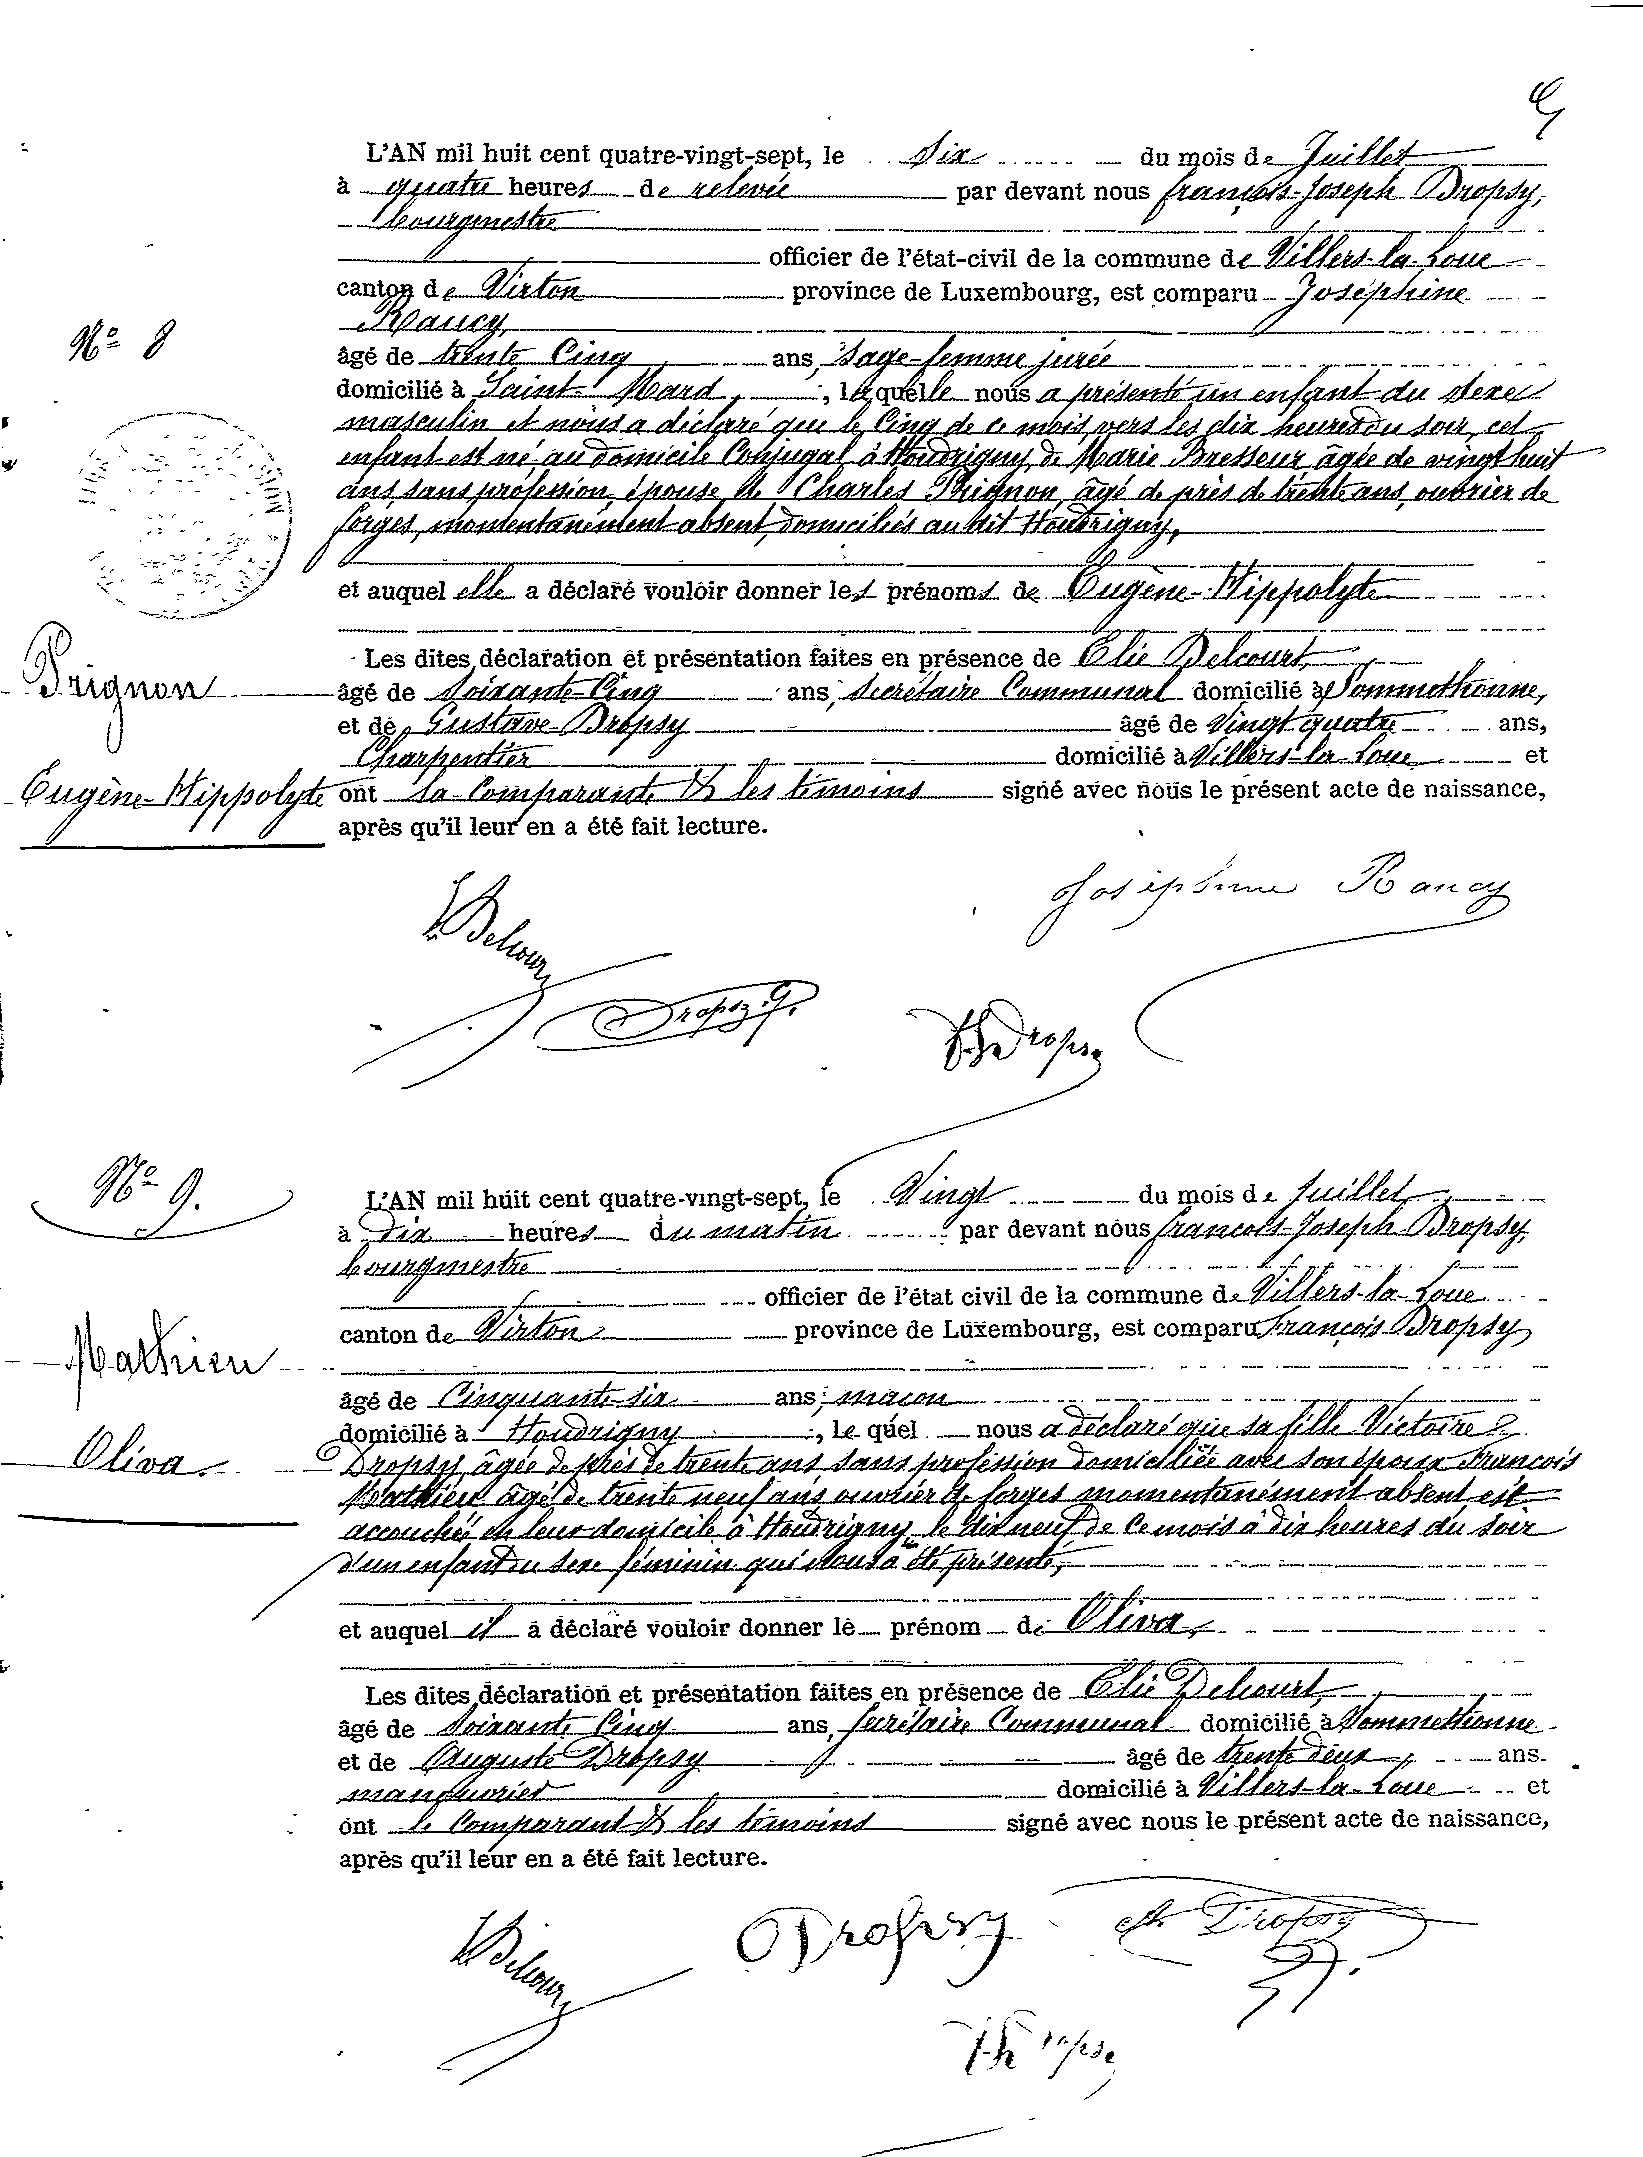 L'AN mil huit cent quatre-vingt-sept, le six du mois de Juillet
à quatre heures de relevée par devant nous françois-Joseph Dropsy,
bourgmestre
officier de l'état-civil de la commune de Villers-la-Loue
canton de Virton province de Luxembourg, est comparu Joséphine
Raucy,
N° 8
âgé de trente Cinq ans, sage-femme jurée
domicilié à Saint-Mard, laquelle nous a présenté un enfant du sexe
masculin et nous a déclaré que le Cinq de ce mois, vers les dix heures du soir, cet
enfant est né au domicile Conjugal, à Houdrigny, de Marie Bresseur, âgée de vingt huit
ans, sans profession, épouse de Charles Prignon, âgé de près de trente ans, ouvrier de
forges, momentanément absent, domiciliés au dit Houdrigny,
et auquel elle a déclaré vouloir donner les prénoms de Eugène-Hippolyte
Les dites déclaration et présentation faites en présence de Elie Delcourt,
Prignon
âgé de soixante-Cinq ans, secrétaire Communal domicilié à Sommethonne,
et de Gustave Dropsy âgé de vingt quatre ans,
Charpentier domicilié à Villers-la-Loue et
Eugène-Hippolyte
ont la Comparante & les témoins signé avec nous le présent acte de naissance,
après qu'il leur en a été fait lecture.
Joséphine Raucy
Delcourt
Dropsy G.
Dropsy
N° 9.
L'AN mil huit cent quatre-vingt-sept, le Vingt du mois de Juillet
à dix heures du matin par devant nous françois-Joseph Dropsy,
bourgmestre
officier de l'état civil de la commune de Villers-la-Loue
canton de Virton province de Luxembourg, est comparu françois Dropsy
Mathieu
âgé de Cinquante-six ans, maçon
domicilié à Houdrigny, le quel nous a déclaré que sa fille Victoire
Oliva.
Dropsy, âgée de près de trente ans, sans profession domiciliée avec son époux François
Mathieu âgé de trente neuf ans ouvrier de forges momentanément absent est
accouchée en leur domicile à Houdrigny, le dix neuf de ce mois à dix heures du soir
d'un enfant du sexe féminin qui nous a été présenté,
et auquel il a déclaré vouloir donner le prénom de Oliva,
Les dites déclaration et présentation faites en présence de Elie Delcourt,
âgé de soixante Cinq ans, secrétaire Communal domicilié à Sommethonne
et de Auguste Dropsy âgé de trente deux, ans.
manouvrier domicilié à Villers-la-Loue et
ont le Comparant & les témoins signé avec nous le présent acte de naissance,
après qu'il leur en a été fait lecture.
Delcourt
Dropsy
Dropsy
Dropsy